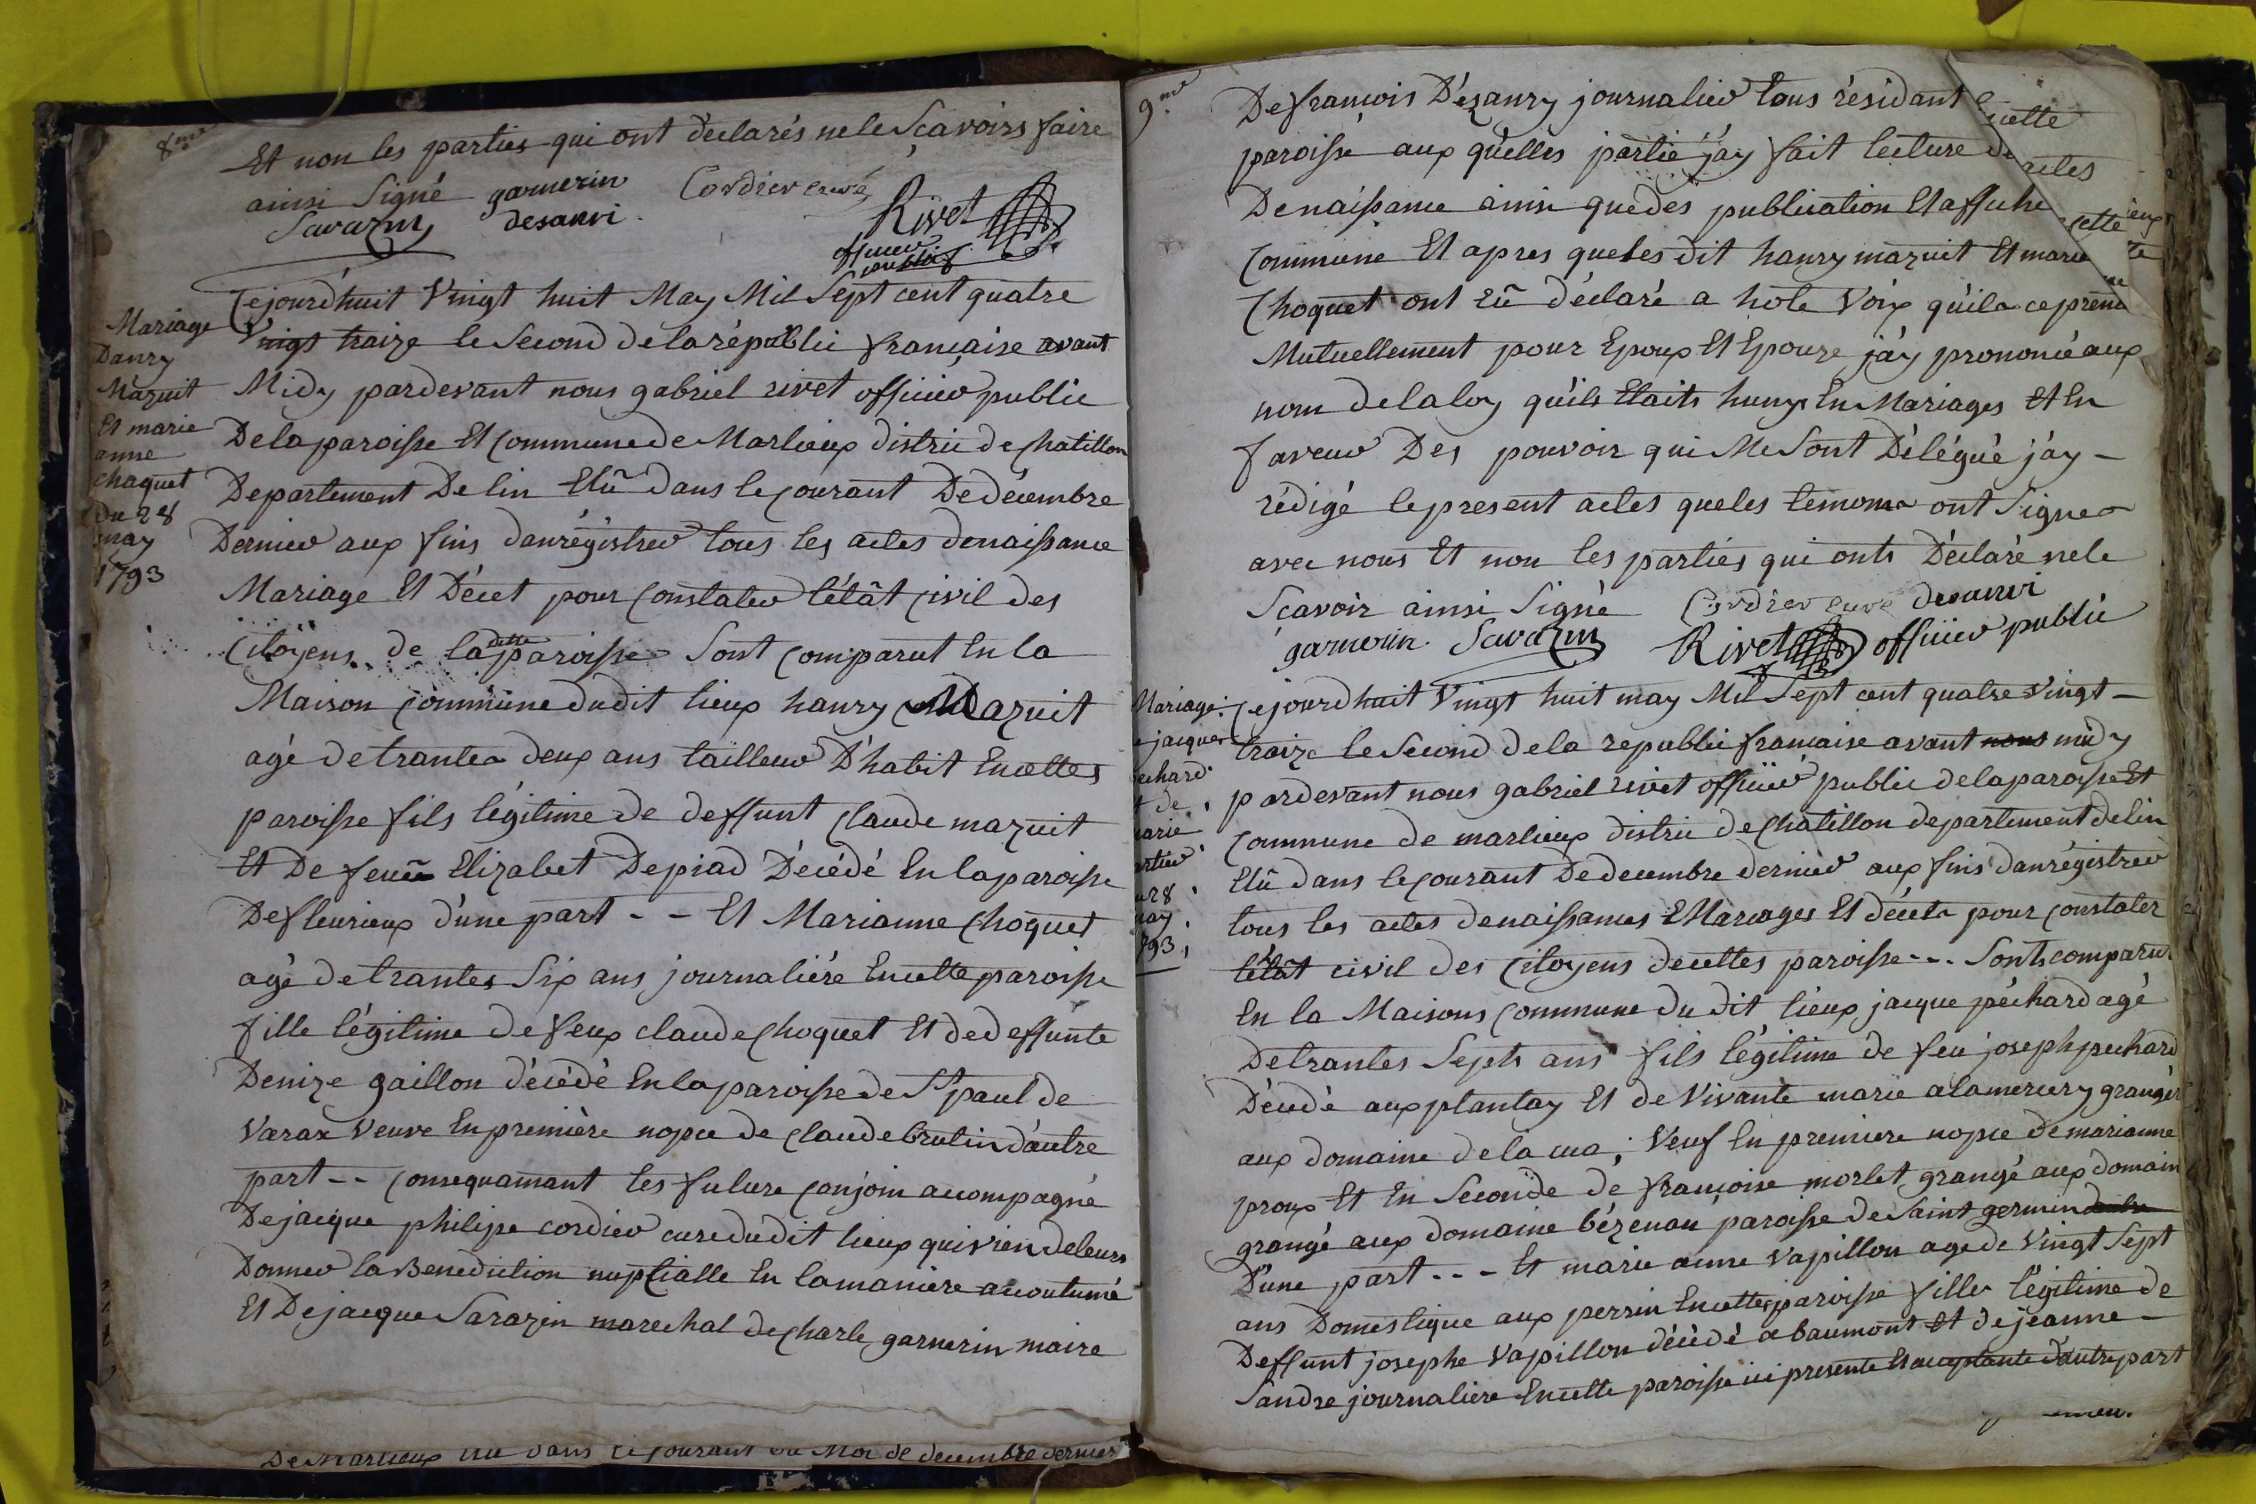 8me
Et non les parties qui ont déclarés ne le Scavoirs faire
ainsi Signé garnerin Cordier curé
Savazin desanvi Rivet
officier public
Mariage
Danry
Mazuit
Et marie
anne
chaquet
Du 28
may
1793
Cejourdhuit Vingt huit May Mil Sept cent quatre
Vingt traize le Second de la républic francaise avant
Midy pardevant nous gabriel rivet officier public
De la paroisse Et Commune de Marlieux distric de Chatillon
Departement De lin Elû dans le Courant De décembre
Dernier aux fins danrégistrer tous les actes de naissance
Mariage Et Décet pour Constater létât Civil des
Citoyens de la dette paroisse Sont Comparut En la
Maison Commune du dit lieux hanry Mazuit
agé de trantes deux ans tailleur D'habit En cettes
paroisse fils légitime de deffunt Claude mazuit
Et De feue Elizabet Depiad Décédé En la paroisse
De fleurieux d'une part - - Et Marianne Choquet
agé de trantes Six ans journaliére En cette paroisse
fille légitime de feux claude Choquet Et de deffunte
Denize gaillon décédé En la paroisse de St paul de
Varax Veuve En première nopce de Claude brutin d'autre
part - - Consequamant les future Conjoin acompagné
De jacque philippe cordier curé du dit lieux qui vien de leurs
Donner la Benediction nuptialle En la manière acoutumé
Et De jacque Sarazin marechal de Charle garnerin maire
De Marlieux Elu dans le Courant du Moi de decembre dernier
9me
De francois Dézanry journalier tous résidant
cette
paroisse aux quélles partie j'áy fait lecture de
actes
De naissance ainsi que des publication Et affiche
cette
Commune Et apres que les dit hanry mazuit Et marie
Choquet ont Eû déclaré a hote Voix qu'il ce prene
Mutuellement pour Epoux Et Epouze j'áy prononcé aux
nom de la loy qu'ils Etaits huny En Mariages Et En
faveur Des pouvoir qui Me Sont Délégué j'áy -
rédigé le present actes que les temoins ont Signer
avec nous Et non les parties qui onts Déclaré ne le
Scavoir ainsi Signé Cordier curé desanvi
garnerin Savazin Rivet officier public
Mariage
jacques
echard
t de
arie
28
may
793
Cejourdhuit Vingt huit may Mil Sept cent quatre Vingt -
traize le Second de la republic francaise avant nous midy
pardevant nous gabriel rivet officier public de la paroisse Et
Commune de marlieux distric de Chatillon departement de lin
Elû dans le Courant De decembre dernier aux fins danrégistrer
tous les actes de naissances Mariages Et décets pour Constater
létât civil des Citoyens de cettes paroisse - - - Sonts comparu
En la Maisons Commune du dit lieux jacque péchard agé
De trantes Septs ans fils légitime de feu joseph pechard
Décédé aux plantay Et de Vivante marie alamercery granger
aux domaine de la cua, Veuf En premiere nopce de marianne
proux Et En Seconde de francoise morlet grangé aux domain
grangé aux domaine bézenan paroisse de Saint germin
D'une part - - - Et marie anne Vapillon agé de Vingt Sept
ans Domestique aux perrin En cettes paroisse fille légitime de
Deffunt josephe Vapillon décédé a baumont Et de jeanne -
Sandre journaliere En cette paroisse ici presente Et acceptante d'autre part